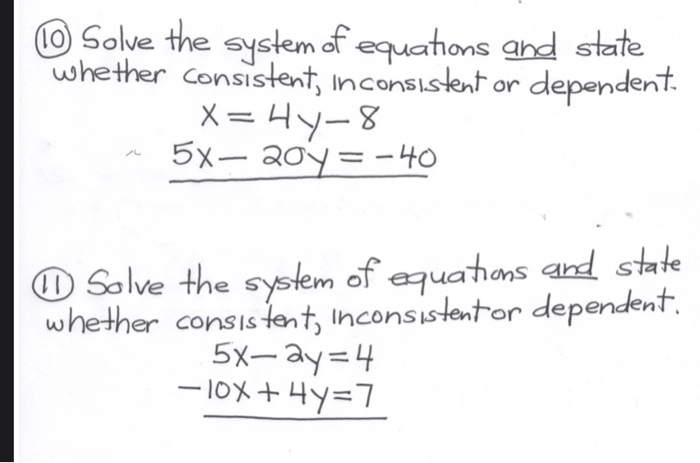 ⑩ Solve the system of equations and state
whether consistent, inconsistent or dependent.
x = 4y - 8
5x - 20y = -40
⑪ Solve the system of equations and state
whether consistent, inconsistent or dependent.
5x - 2y = 4
-10x + 4y = 7